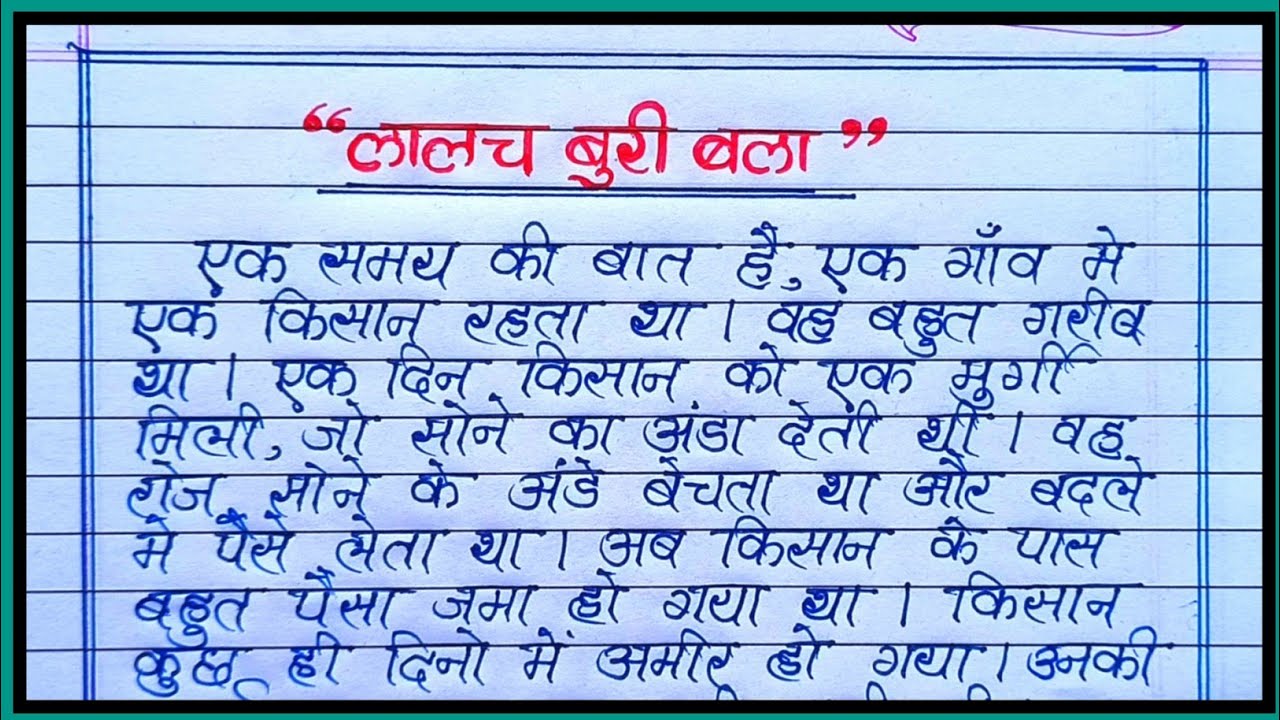 “लालच बुरी बला”
एक समय की बात है, एक गाँव मे
एक किसान रहता था। वह बहुत गरीब
था। एक दिन किसान को एक मुर्गी
मिली, जो सोने का अंडा देती थी। वह
रोज सोने के अंडे बेचता था और बदले
मे पैसे लेता था। अब किसान के पास
बहुत पैसा जमा हो गया था। किसान
कुछ ही दिनो में अमीर हो गया। उनकी